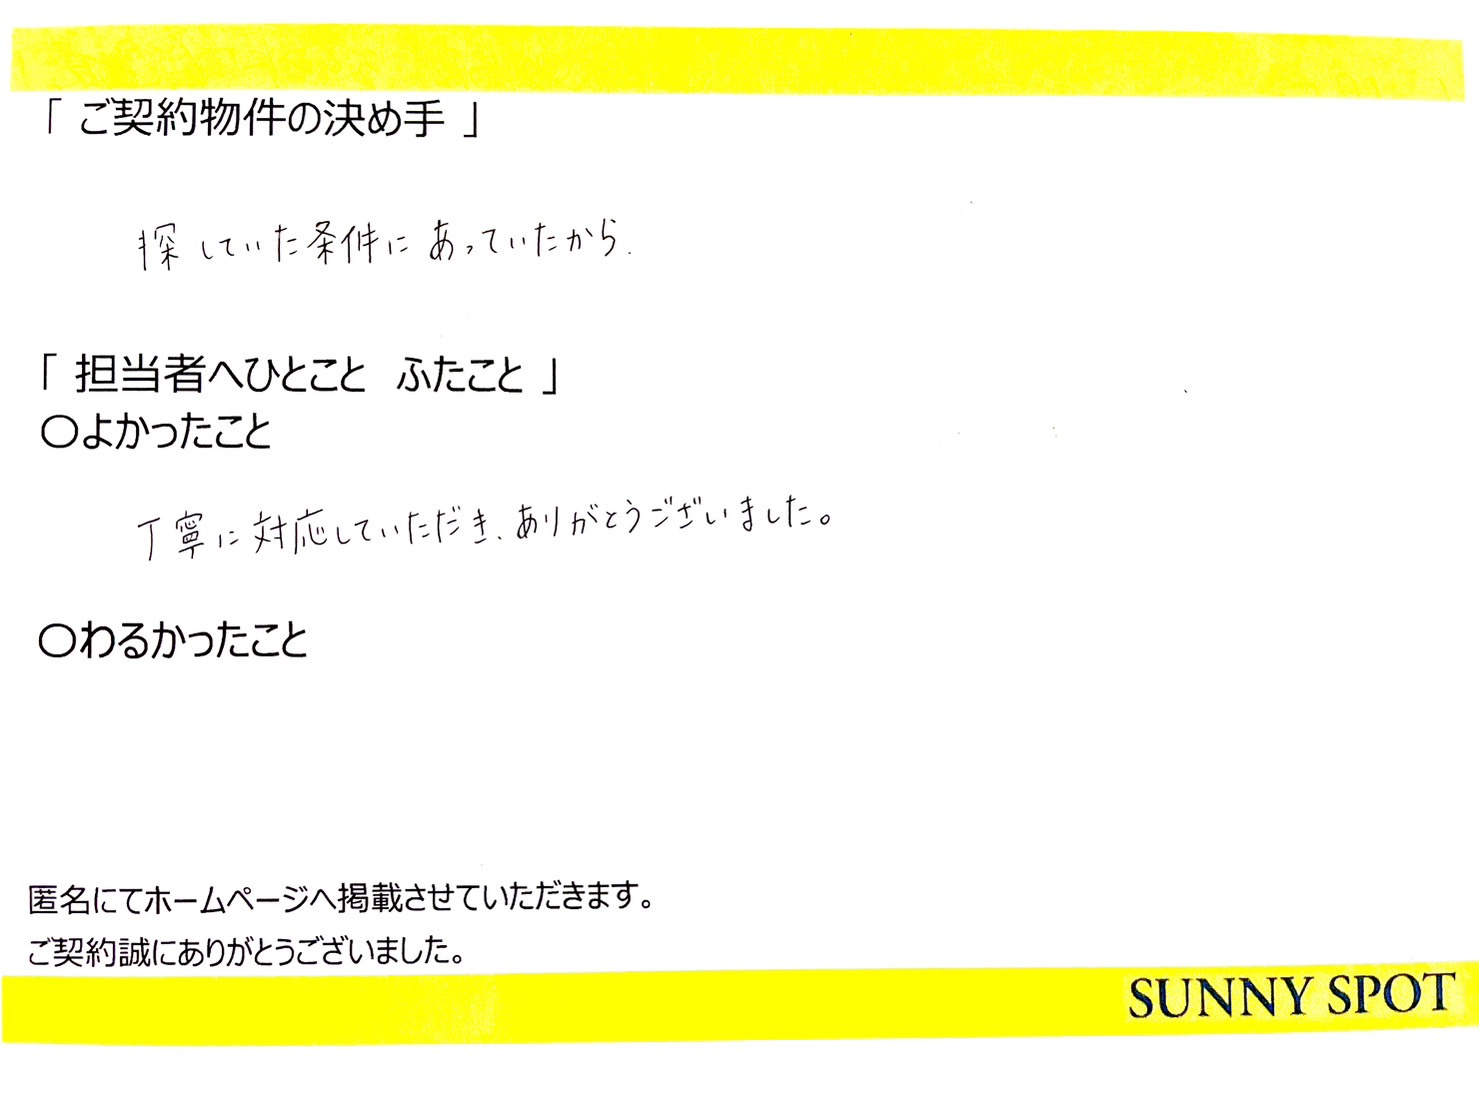 「 ご契約物件の決め手 」
探していた条件にあっていたから.
「 担当者へひとこと　ふたこと 」
〇よかったこと
丁寧に対応していただき、ありがとうございました。
〇わるかったこと
匿名にてホームページへ掲載させていただきます。
ご契約誠にありがとうございました。
SUNNY SPOT